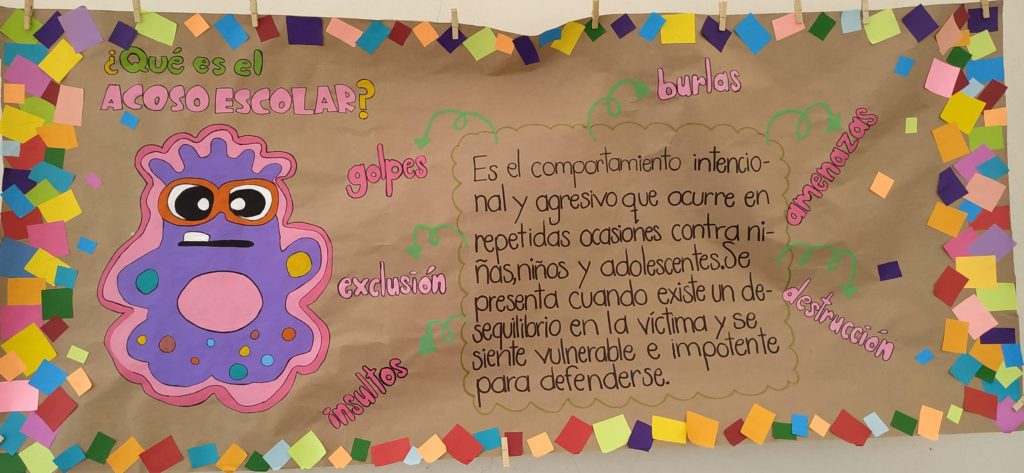 ¿Qué es el
ACOSO ESCOLAR?
burlas
golpes
amenazas
exclusión
destrucción
insultos
Es el comportamiento intencio-
nal y agresivo que ocurre en
repetidas ocasiones contra ni-
ñas,niños y adolescentes.Se
presenta cuando existe un de-
sequilibrio en la víctima y se
siente vulnerable e impotente
para defenderse.